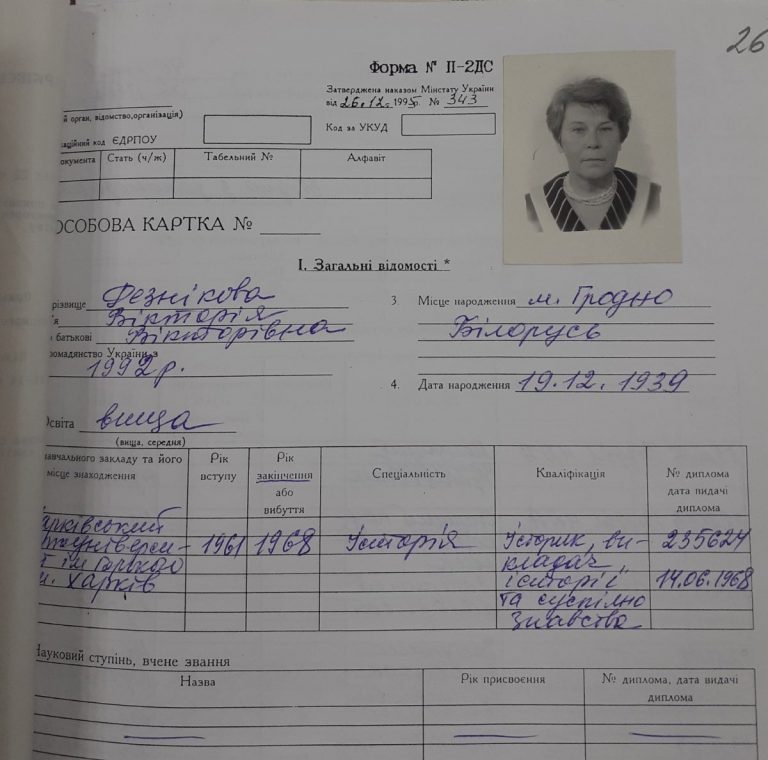 26
Форма № П-2ДС
Затверджена наказом Мінстату України
від 26.12. 1995р. № 343
й орган, відомство, організація)
аційний код ЄДРПОУ
Код за УКУД
окумента Стать (ч/ж) Табельний № Алфавіт
ОСОБОВА КАРТКА №
I. Загальні відомості *
різвище Фезнікова
я Вікторія
о батькові Вікторівна
ромадянство України з
1992 р.
3. Місце народження м. Гродно
Білорусь
4. Дата народження 19.12.1939
Освіта вища
(вища, середня)
авчального закладу та його місце знаходження
Рік вступу
Рік закінчення або вибуття
Спеціальність
Кваліфікація
№ диплома дата видачі диплома
арківський
університ
ім Горького
м. Харків
1961
1968
Історія
Історик, ви-
кладач
історії
та суспільно
знавства
235624
14.06.1968
Науковий ступінь, вчене звання
Назва Рік присвоєння № диплома, дата видачі диплома